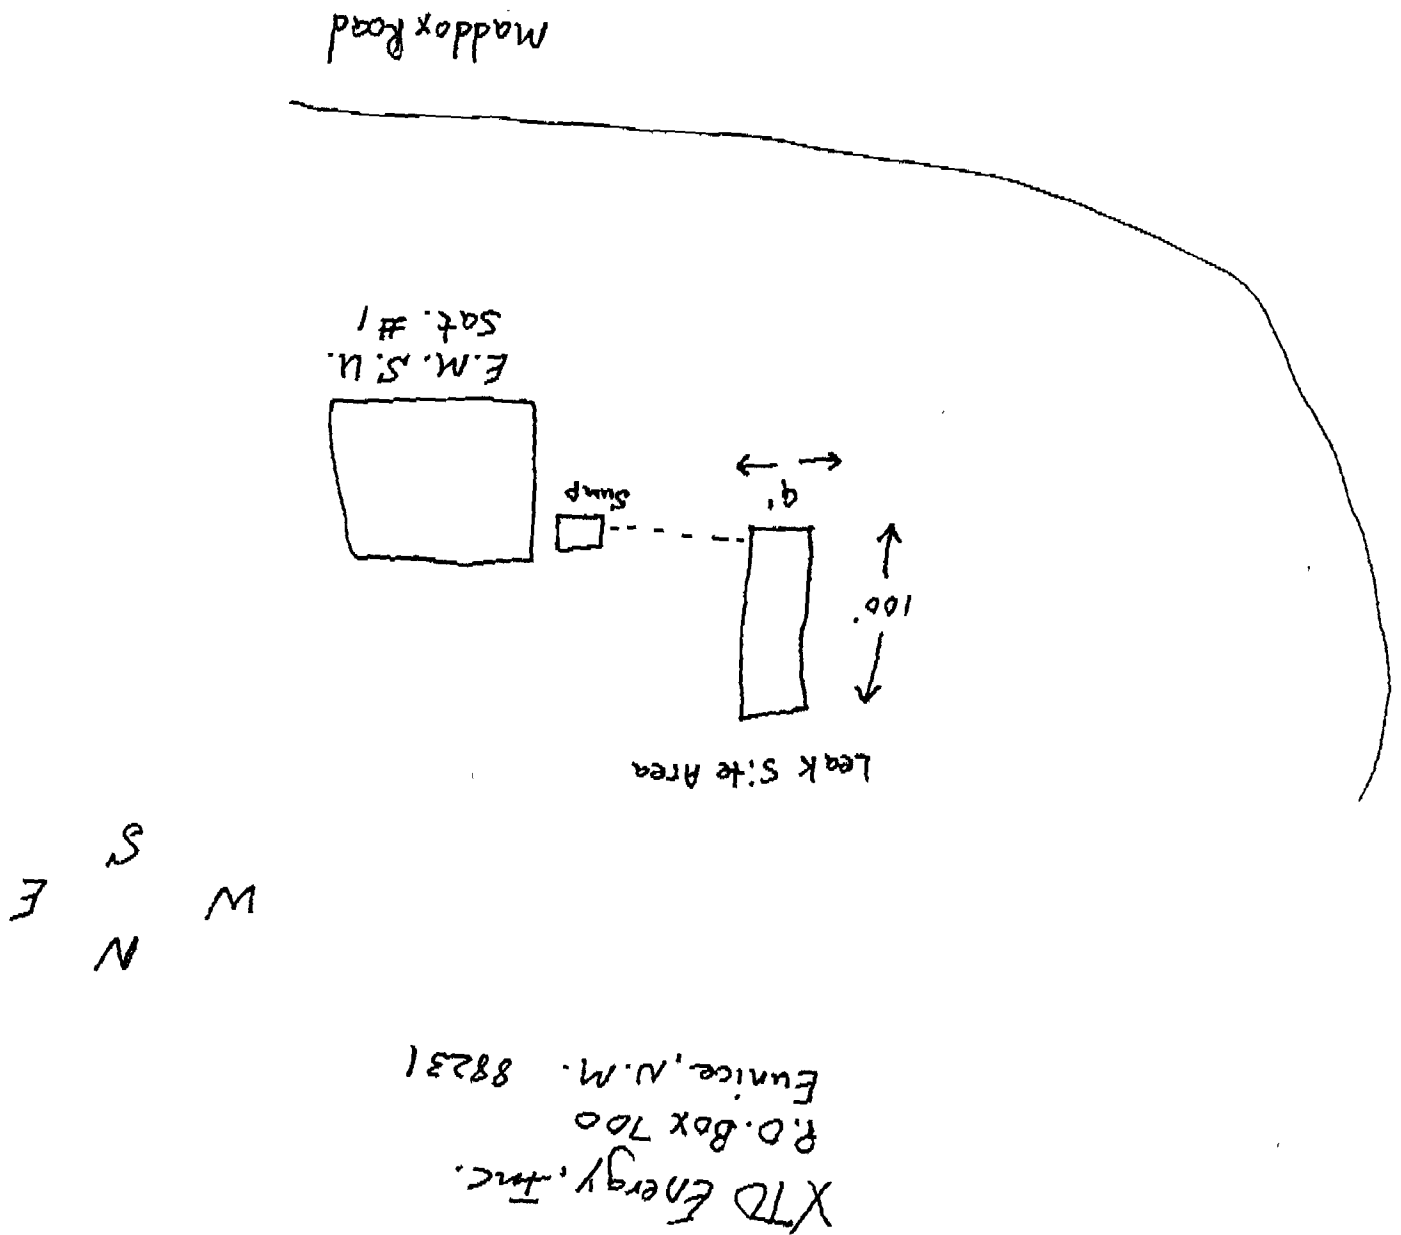 XTO Energy, Inc.
P.O. Box 700
Eunice, N.M. 88231
N
W E
S
Leak Site Area
100'
Sump
E.M.S.U.
Sat. #1
Maddox Road